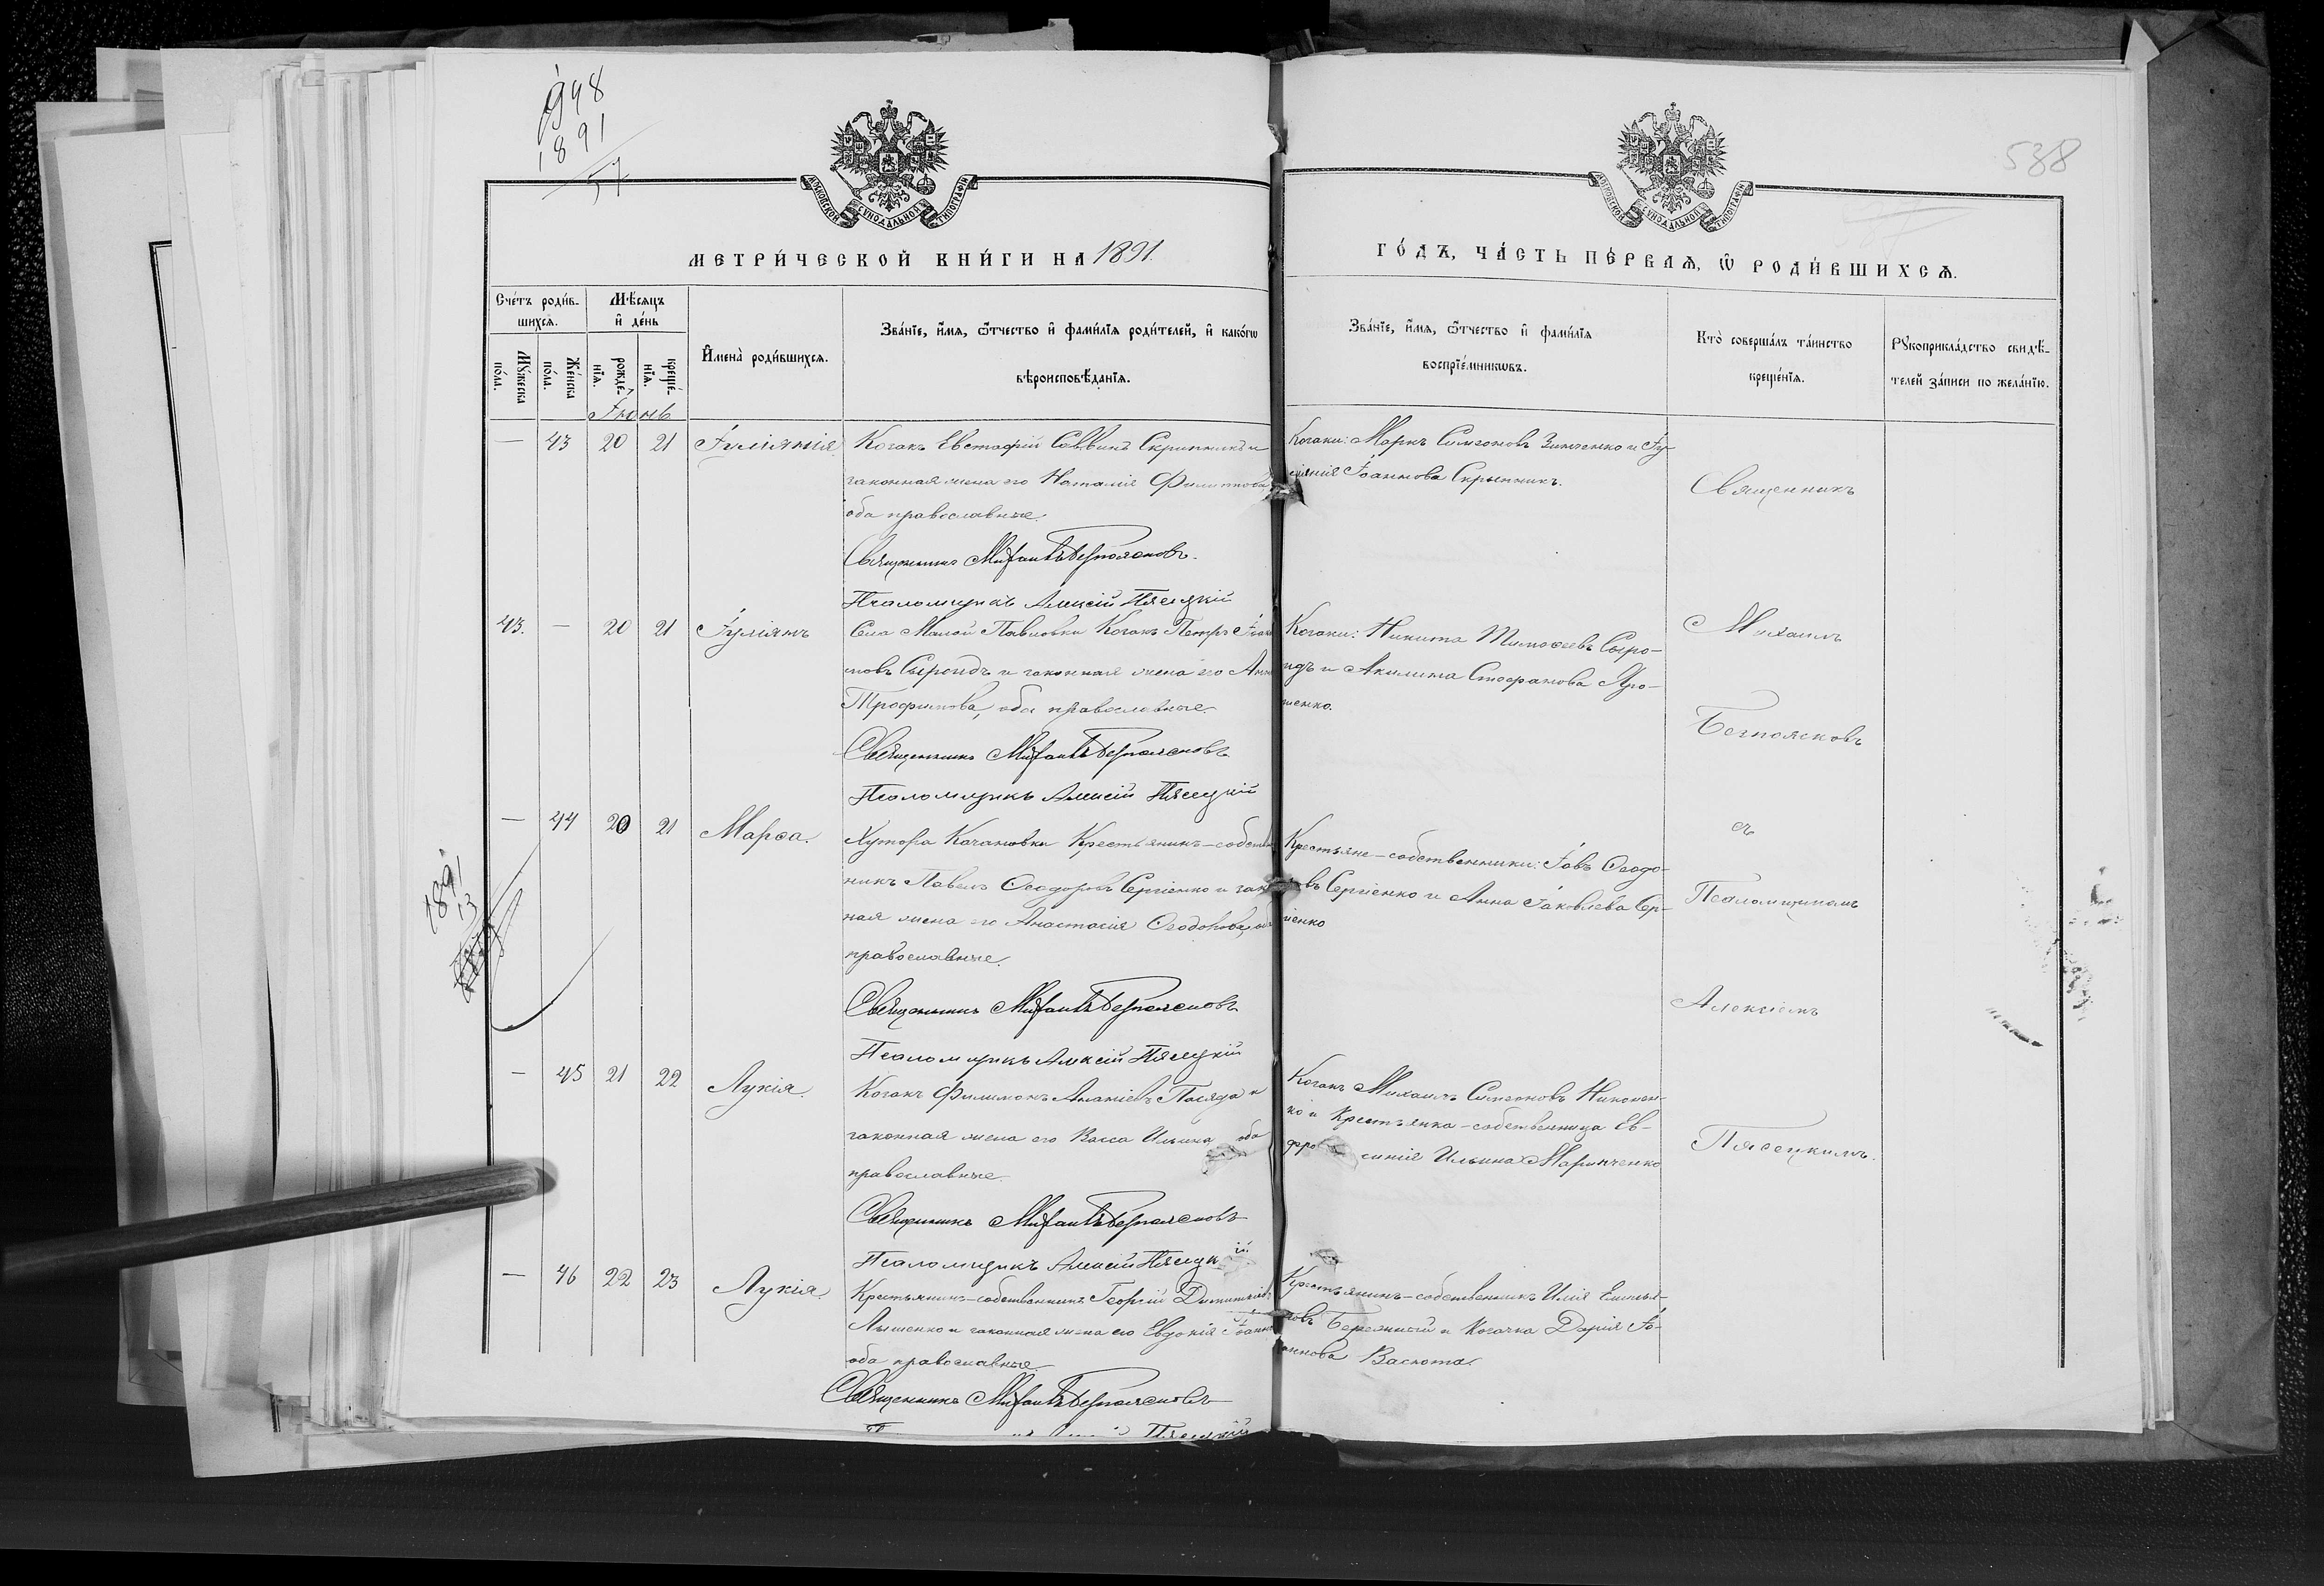 1891
57
538
МОСКОВСКОЙ СУНОДАЛЬНОЙ ТИПОГРАФІИ
МОСКОВСКОЙ СУНОДАЛЬНОЙ ТИПОГРАФІИ
МЕТРИ́ЧЕСКОЙ КНИ́ГИ НА 1891.
ГО́ДЪ, ЧА́СТЬ ПЕ́РВАѦ, Ѡ҆ РОДИ́ВШИХСѦ.
Сче́тъ роди́в-
шихсѧ.
Мѣ́сѧцъ
и҆ де́нь
Мꙋ́жеска
по́ла.
Же́нска
по́ла.
рожде́-
нїѧ.
креще́-
нїѧ.
И҆мена̀ роди́вшихсѧ.
Зва́нїе, и҆́мѧ, ѻ҆́тчество и҆ фами́лїѧ роди́телей, и҆ како́гѡ
вѣроисповѣ́данїѧ.
Зва́нїе, и҆́мѧ, ѻ҆́тчество и҆ фами́лїѧ
воспрїе́мникѡвъ.
Кто̀ соверша́лъ та́инство
креще́нїѧ.
Рꙋкоприкла́дство свидѣ́-
телей за́писи по жела́нїю.
Іюнь
— 43 20 21 Іуліянія
Козакъ Евстафій Саввинъ Скрипникъ и
законная жена его Наталія Филиппова
оба православные.
Священникъ Михаилъ Безпоясковъ.
Псаломщикъ Алексій Пясецкій
Козаки: Маркъ Симеоновъ Зинченко и Іу-
ліянія Іоаннова Скрыпникъ.
43. — 20 21 Іуліянъ
Села Малой Павловки Козакъ Петръ Іоан-
новъ Сыроидъ и законная жена его Анна
Трофимова, оба православные.
Священникъ Михаилъ Безпоясковъ
Псаломщикъ Алексій Пясецкій
Козаки: Никита Тимоѳеевъ Сыро-
идъ и Акилина Стефанова Яро-
шенко.
— 44 20 21 Марѳа.
Хутора Качановки Крестьянинъ-собствен
никъ Павелъ Ѳеодоровъ Сергіенко и закон
ная жена его Анастасія Ѳеодорова, оба
православные.
Священникъ Михаилъ Безпоясковъ
Псаломщикъ Алексій Пясецкій
Крестьяне-собственники: Іовъ Ѳеодо-
въ Сергіенко и Анна Іаковлева Сер-
гіенко
— 45 21 22 Лукія.
Козакъ Филимонъ Ананіевъ Пасяда и
законная жена его Васса Ильина оба
православные.
Священникъ Михаилъ Безпоясковъ
Псаломщикъ Алексій Пясецкій
Козакъ Михаилъ Симеоновъ Никонен-
ко и Крестьянка-собственница Ев-
фросинія Ильина Маринченко
— 46 22 23 Лукія.
Крестьянинъ-собственникъ Георгій Димитріевъ
Ляшенко и законная жена его Евдокія Іоаннова
оба православные.
Священникъ Михаилъ Безпоясковъ
Пясецкій
Крестьянинъ-собственникъ Илія Емилья-
новъ Бережный и Козачка Дарія Іо-
аннова Васюта.
Священникъ
Михаилъ
Безпоясковъ
съ
Псаломщикомъ
Алексіемъ
Пясецкимъ.
1891